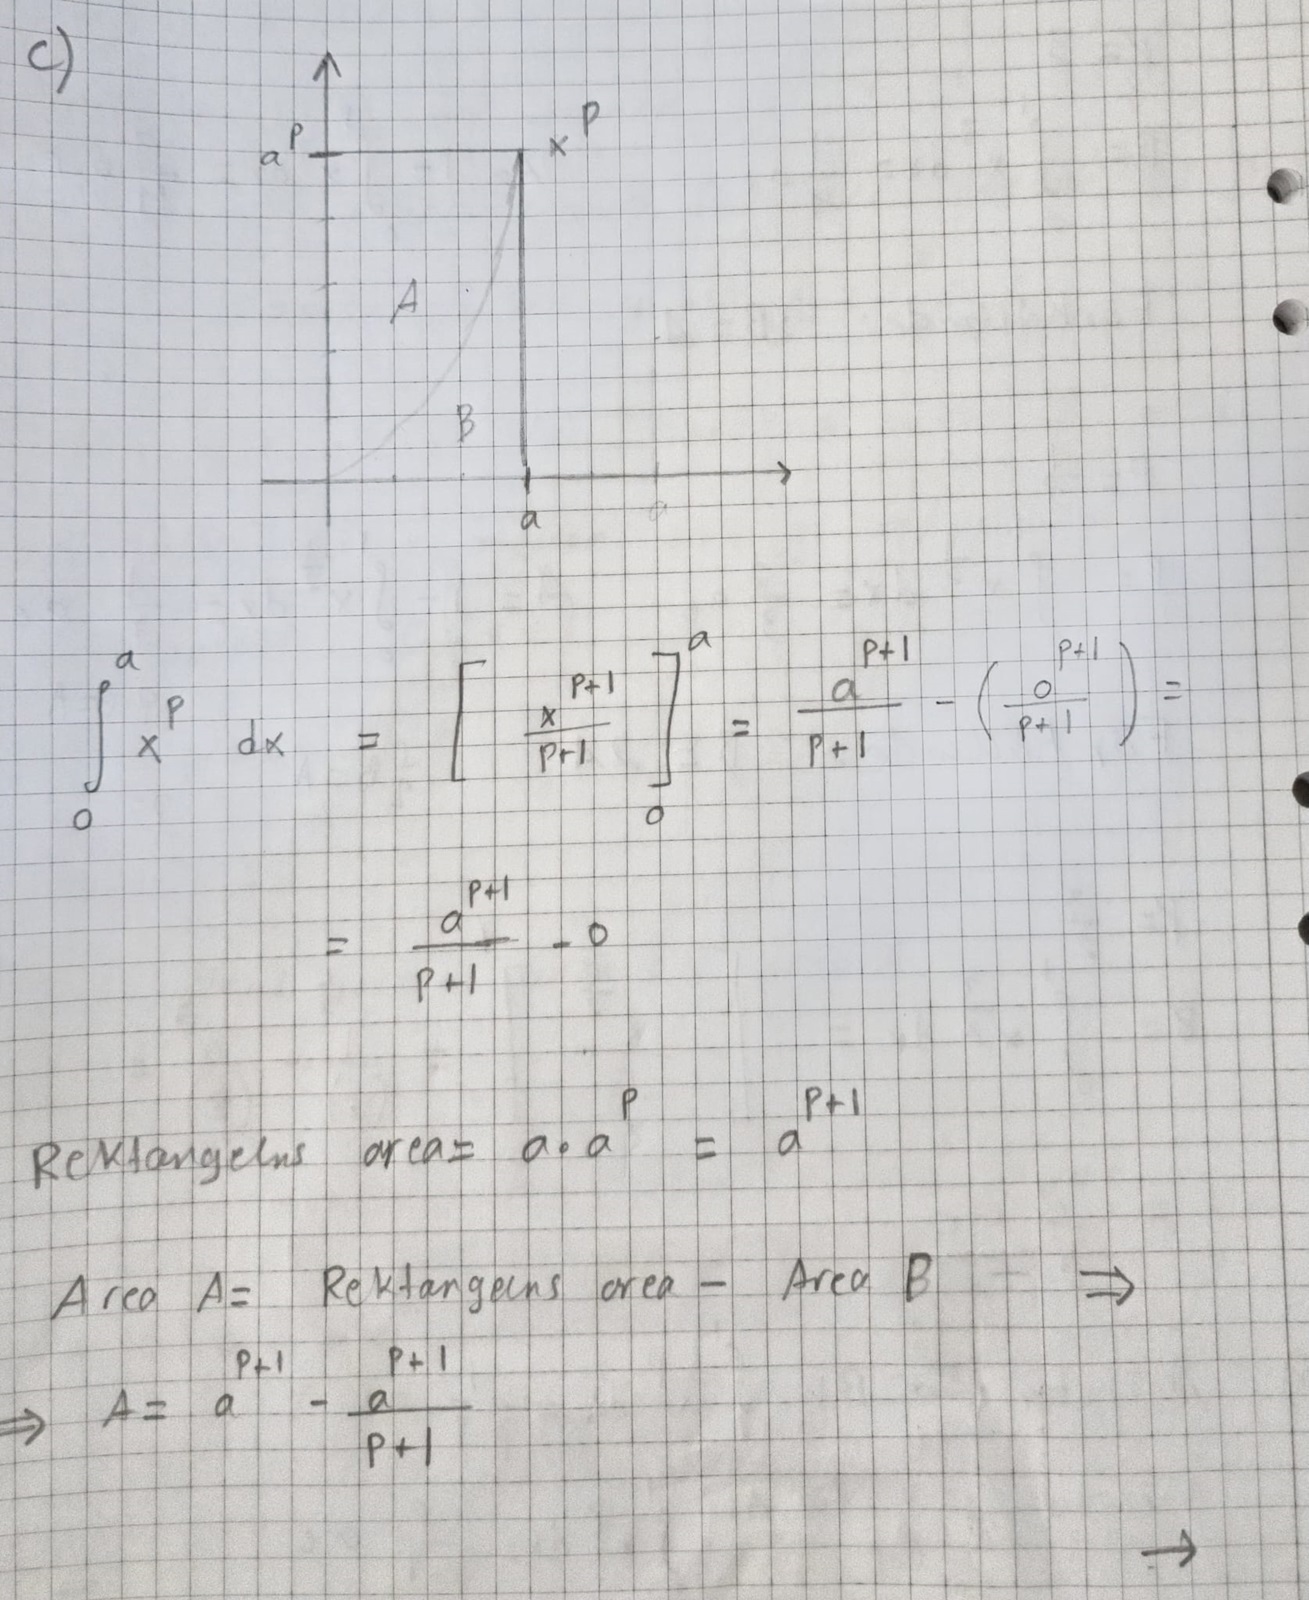 c)
a^p
x^p
A
B
a
a
∫₀^a x^p dx = [ x^(p+1) / (p+1) ]₀^a = a^(p+1) / (p+1) - ( 0^(p+1) / (p+1) ) =
= a^(p+1) / (p+1) - 0
Rektangelns area = a · a^p = a^(p+1)
Area A = Rektangelns area - Area B ⇒
⇒ A = a^(p+1) - a^(p+1) / (p+1)
→